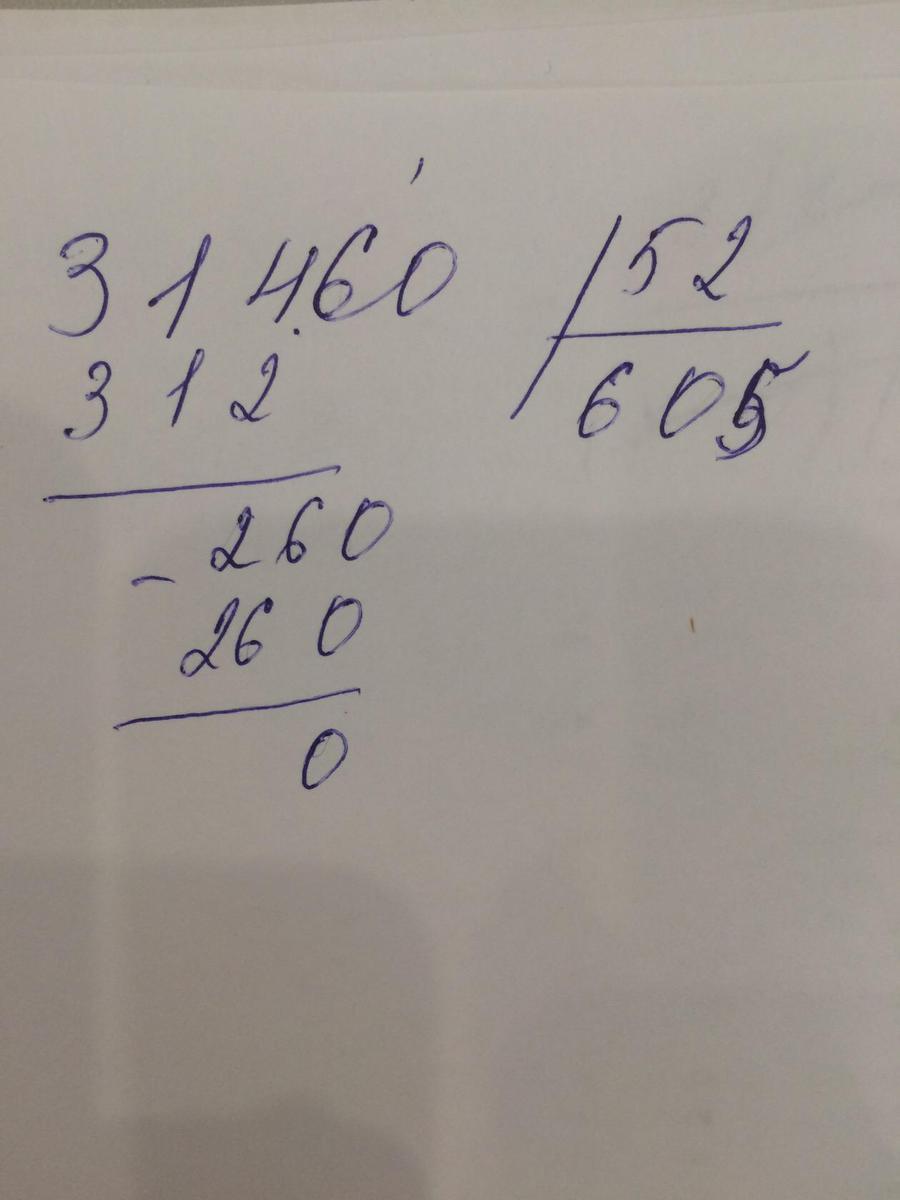 31460 52
312 605
- 260
260
0